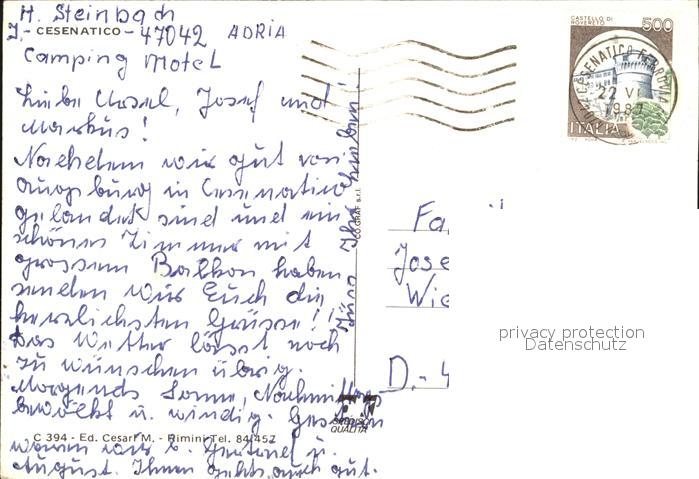 H. Steinbach
I.- CESENATICO - 47042 ADRIA
Camping Motel
Liebe Ursel, Josef und
Markus!
Nachdem wir gut von
Augsburg in Cesenatico
gelandet sind und ein
schönes Zimmer mit
grossem Balkon haben
senden wir Euch die
herzlichsten Grüsse!!
Das Wetter lässt noch
zu wünschen übrig.
Morgends Sonne, Nachmittags
bewölkt u. windig. Gestern
waren wir b. u.
August. Ihnen gehts auch gut.
CO.GRAF s.r.l.
QUALITÀ
C 394 - Ed. Cesari M. - Rimini Tel. 84457
CASTELLO DI
ROVERETO
500
ITALIA
CESENATICO FERROVIA
22 VI
1987
Fa
Jose
Wie
D.-4
privacy protection
Datenschutz